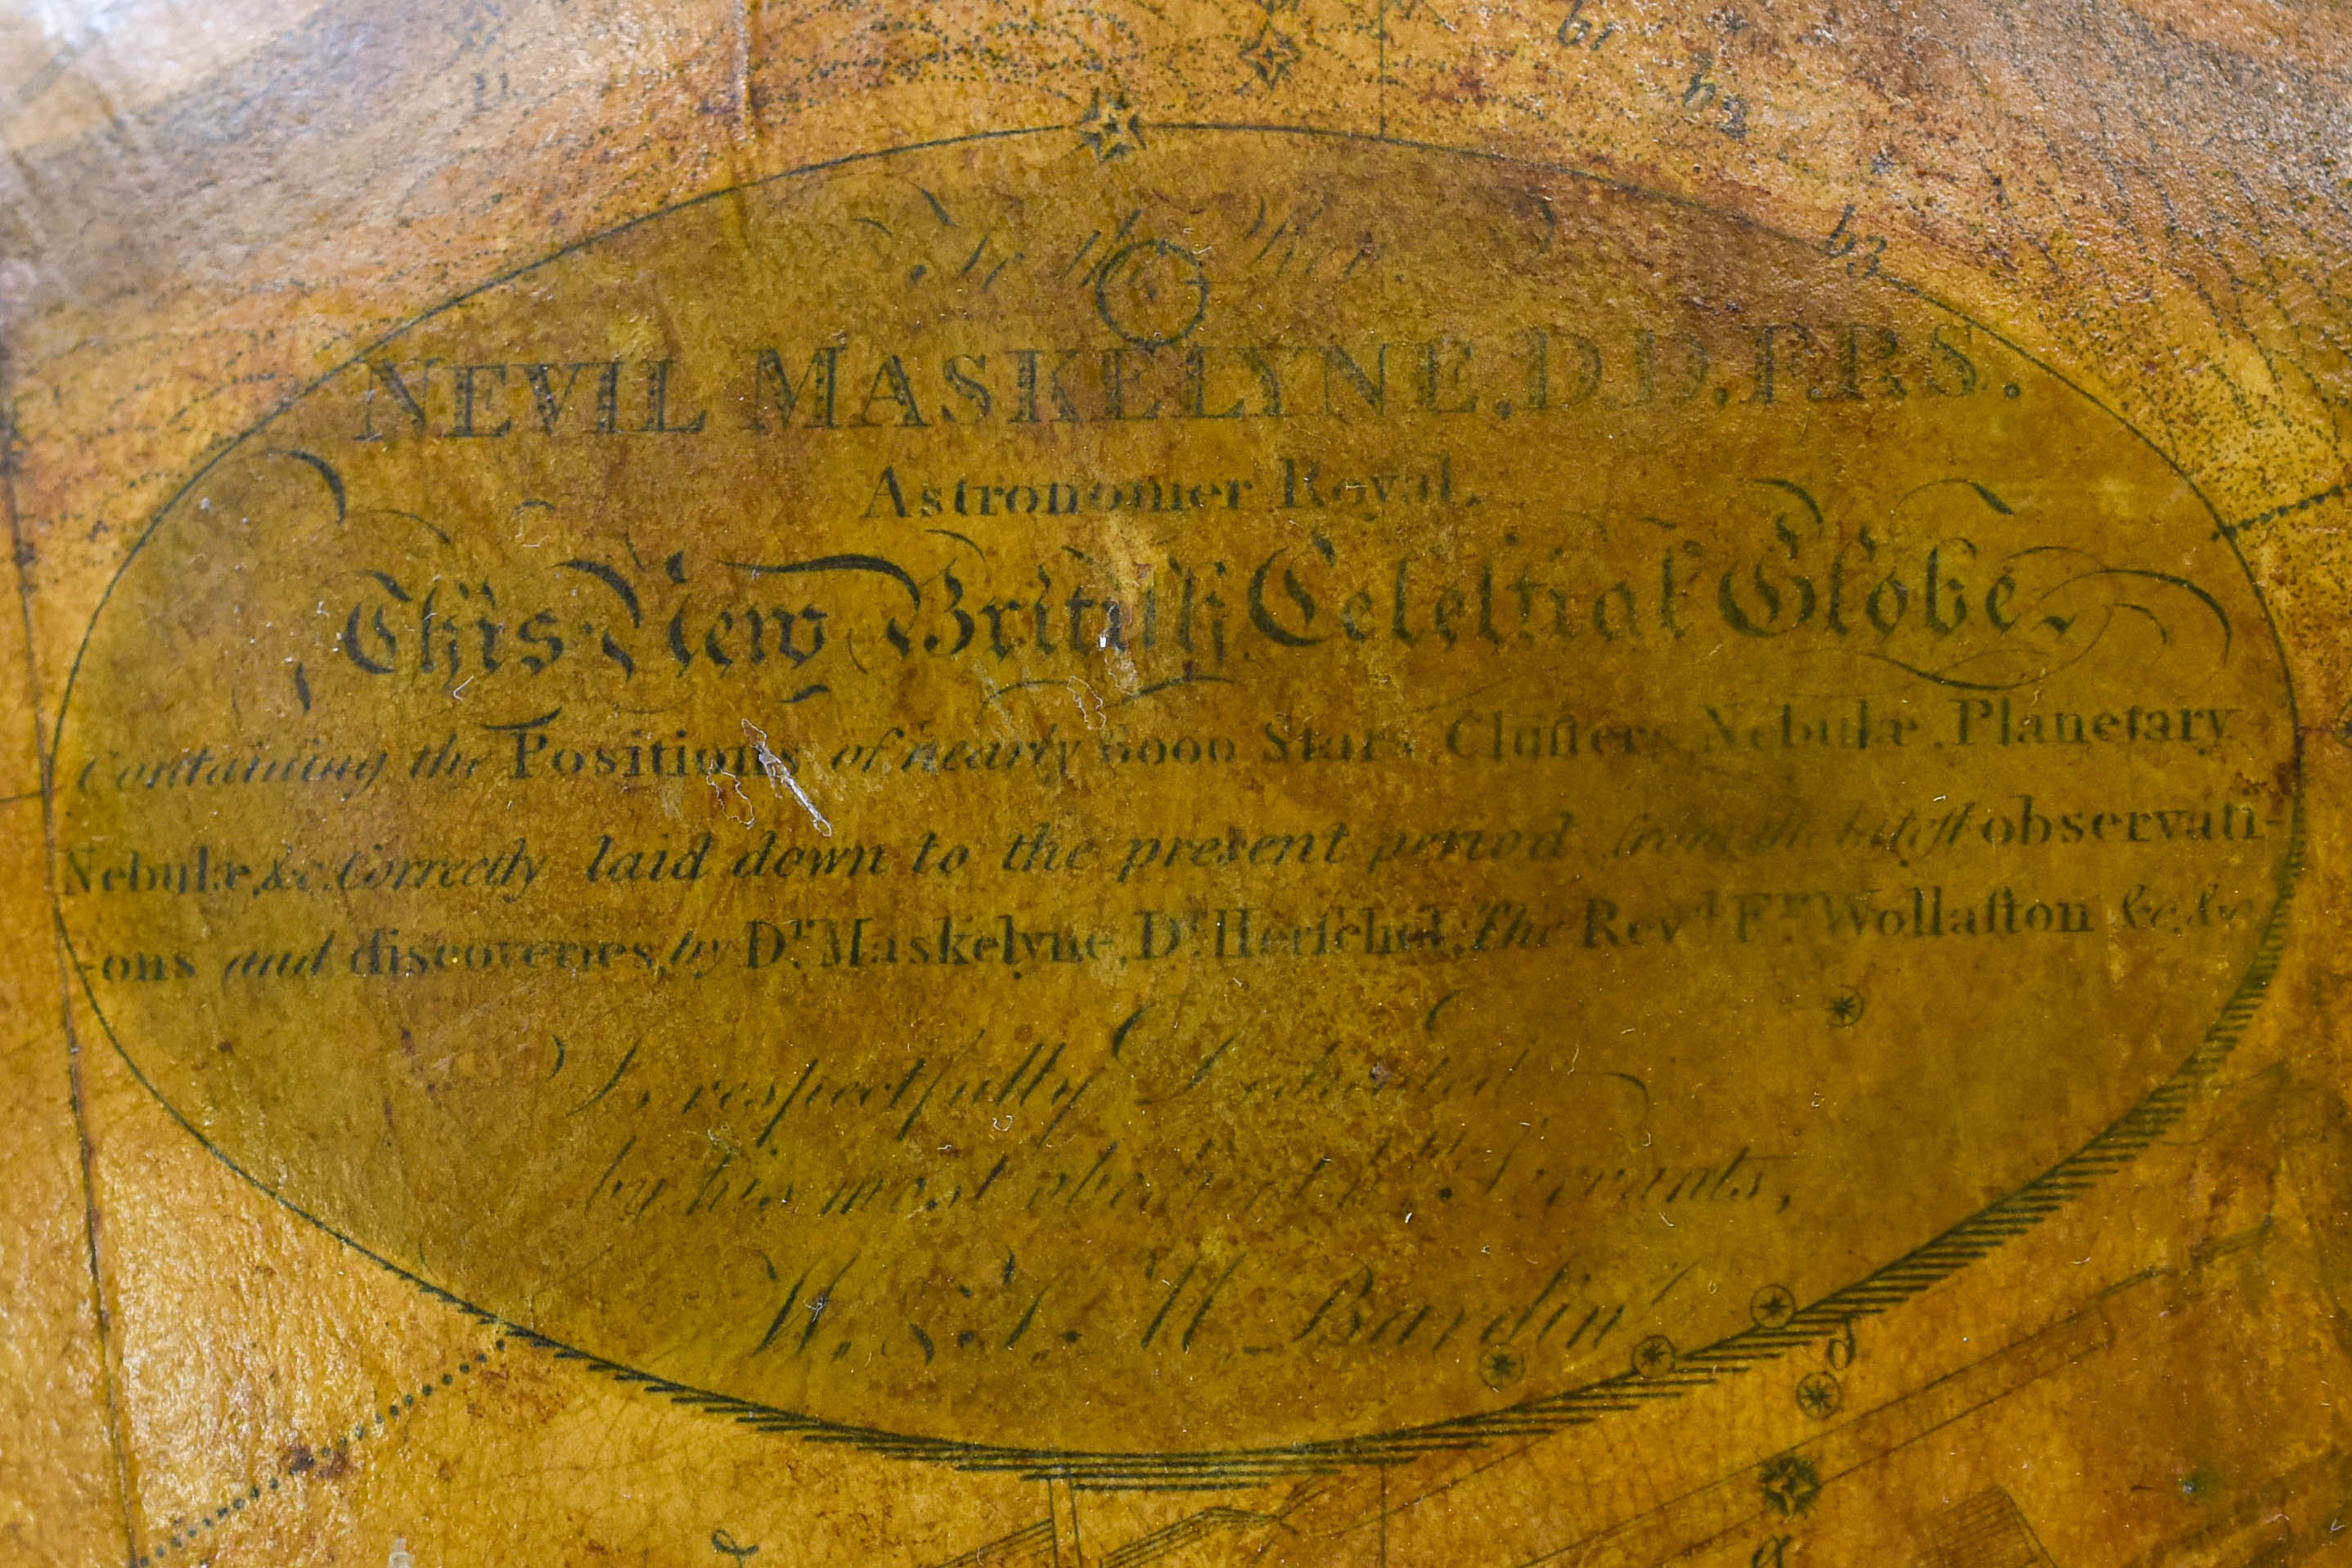 To the Rev.
NEVIL MASKELYNE, D.D. F.R.S.
Astronomer Royal,
This New Britiſh Celeſtial Globe,
Containing the Positions of nearly 6000 Stars, Cluſters, Nebulæ, Planetary
Nebulæ, &c. Correctly laid down to the present period from the lateſt observati-
-ons and discoveries, by Dr. Maskelyne, Dr. Herſchel, The Revd. Fr. Wollaſton &c. &c.
Is respectfully Dedicated
by his most obedient hble. Servants,
W. & T. M. Bardin
b1
b2
b3
δ
α